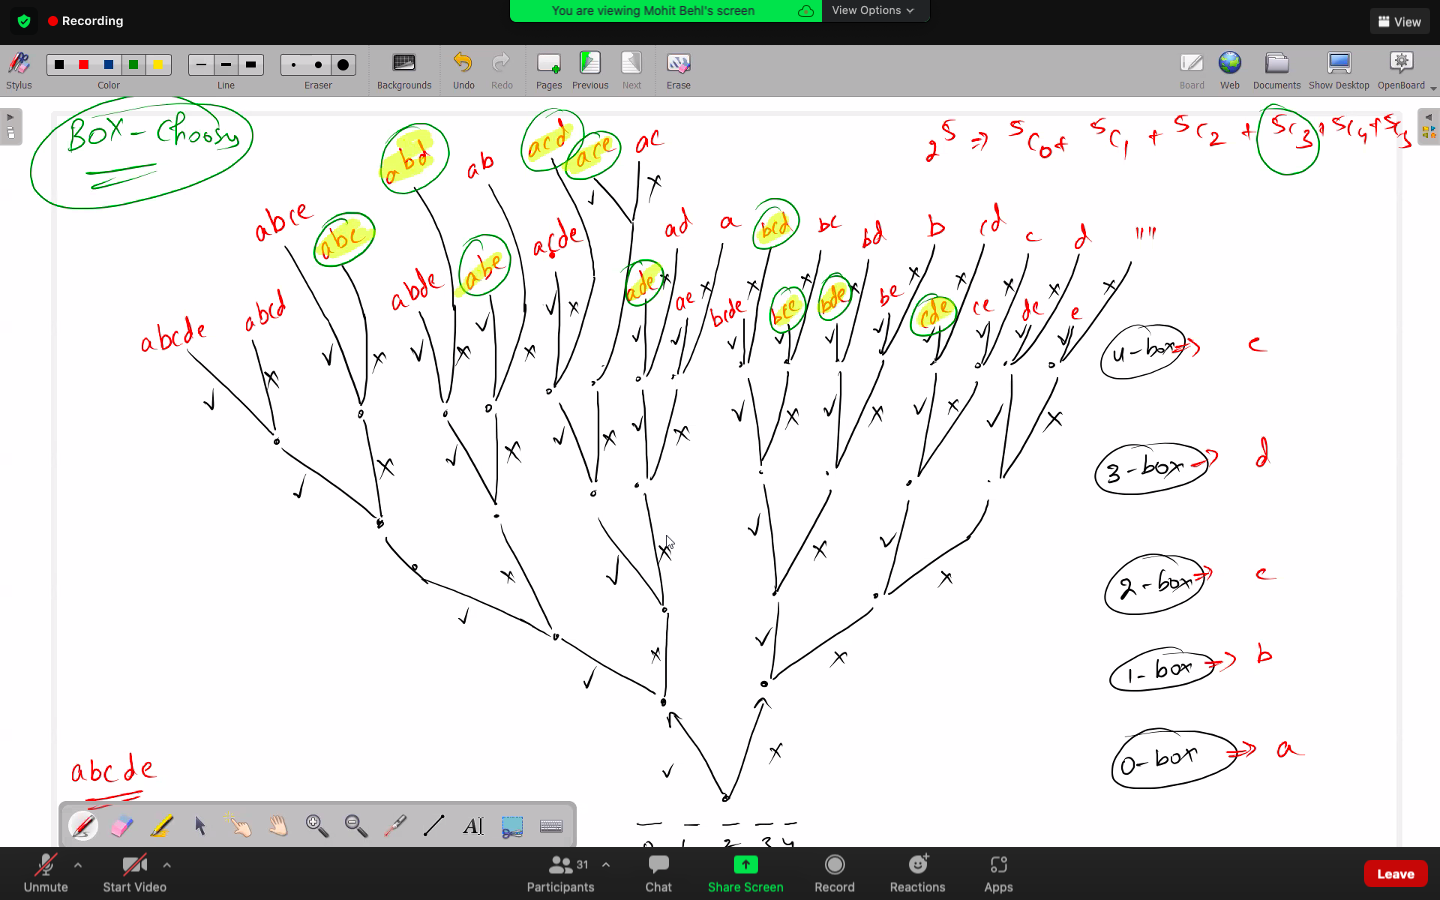 Recording
You are viewing Mohit Behl's screen
View Options
View
Stylus
Color
Line
Eraser
Backgrounds
Undo
Redo
Pages
Previous
Next
Erase
Board
Web
Documents
Show Desktop
OpenBoard
BOX - Choosy
2^5 => 5C0 + 5C1 + 5C2 + 5C3 + 5C4 + 5C5
abd ab acd ace ac
abce abc abde abe acde ade ad ae a bcd bc bd b cd c d ""
abcde abcd bcde bce bde be cde ce de e
4-box => e
3-box => d
2-box => c
1-box => b
0-box => a
abcde
0 1 2 3 4
Unmute
Start Video
Participants
31
Chat
Share Screen
Record
Reactions
Apps
Leave